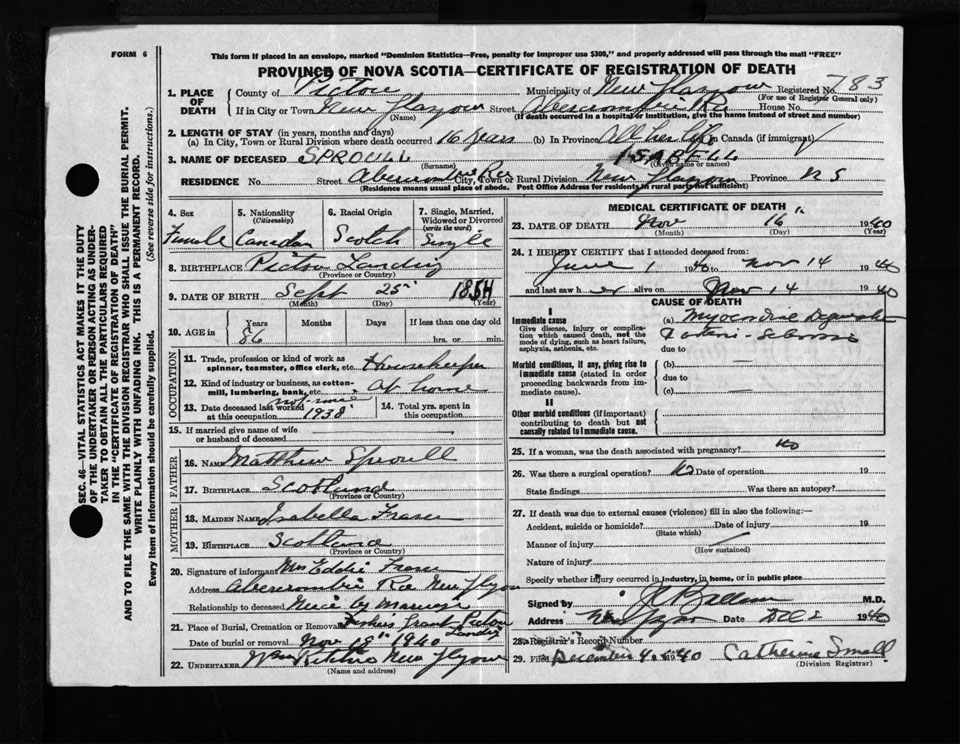 FORM 6
This form if placed in an envelope, marked "Dominion Statistics—Free, penalty for improper use $300," and properly addressed will pass through the mail "FREE"
PROVINCE OF NOVA SCOTIA—CERTIFICATE OF REGISTRATION OF DEATH
SEC. 46— VITAL STATISTICS ACT MAKES IT THE DUTY
OF THE UNDERTAKER OR PERSON ACTING AS UNDER-
TAKER TO OBTAIN ALL THE PARTICULARS REQUIRED
IN THE "CERTIFICATE OF REGISTRATION OF DEATH"
AND TO FILE THE SAME WITH THE DIVISION REGISTRAR WHO SHALL ISSUE THE BURIAL PERMIT.
WRITE PLAINLY WITH UNFADING INK. THIS IS A PERMANENT RECORD.
Every item of information should be carefully supplied. (See reverse side for instructions.)
1. PLACE OF DEATH County of Pictou Municipality of New Glasgow Registered No. 783
(For use of Registrar General only)
If in City or Town New Glasgow Street Abercrombie Rd House No.
(Name) (If death occurred in a hospital or institution, give the name instead of street and number)
2. LENGTH OF STAY (in years, months and days)
(a) In City, Town or Rural Division where death occurred 16 years (b) In Province All her life in Canada (if immigrant) /
3. NAME OF DECEASED SPROULL ISABELL
(Surname) (Given name or names)
RESIDENCE No. Street Abercrombie Rd City, Town or Rural Division New Glasgow Province N S
(Residence means usual place of abode. Post Office Address for residents in rural parts not sufficient)
4. Sex Female
5. Nationality (Citizenship) Canadian
6. Racial Origin Scotch
7. Single, Married, Widowed or Divorced (write the word) Single
8. BIRTHPLACE Pictou Landing
(Province or Country)
9. DATE OF BIRTH Sept 25" 1854
(Month) (Day) (Year)
10. AGE in Years 86 Months Days If less than one day old hrs. or min.
OCCUPATION
11. Trade, profession or kind of work as spinner, teamster, office clerk, etc. Housekeeper
12. Kind of industry or business, as cotton-mill, lumbering, bank, etc. at home
13. Date deceased last worked at this occupation not since 1938
14. Total yrs. spent in this occupation
15. If married give name of wife or husband of deceased
FATHER
16. NAME Matthew Sproull
17. BIRTHPLACE Scotland
(Province or Country)
MOTHER
18. MAIDEN NAME Isabella Fraser
19. BIRTHPLACE Scotland
(Province or Country)
20. Signature of informant Mrs Eddie Fraser
Address Abercrombie Rd New Glgow
Relationship to deceased Niece by Marriage
21. Place of Burial, Cremation or Removal Fishers Grant Pictou Landing
Date of burial or removal Nov 1940
22. UNDERTAKER Wm Ritchie New Glgow
(Name and address)
MEDICAL CERTIFICATE OF DEATH
23. DATE OF DEATH Nov 16" 1940
(Month) (Day) (Year)
24. I HEREBY CERTIFY that I attended deceased from:
June 1 1940 to Nov 14 1940
and last saw her alive on Nov 14 1940
CAUSE OF DEATH
I
Immediate cause (a) Myocardial
Give disease, injury or complication which caused death, not the mode of dying, such as heart failure, asphyxia, asthenia, etc.
due to
Morbid conditions, if any, giving rise to immediate cause (stated in order proceeding backwards from immediate cause)
(b)
due to
(c)
II
Other morbid conditions (if important) contributing to death but not causally related to immediate cause.
25. If a woman, was the death associated with pregnancy? no
26. Was there a surgical operation? No Date of operation 19
State findings Was there an autopsy?
27. If death was due to external causes (violence) fill in also the following:—
Accident, suicide or homicide? Date of injury 19
(State which)
Manner of injury
(How sustained)
Nature of injury
Specify whether injury occurred in industry, in home, or in public place
Signed by M.D.
Address Date Dec 2 1940
28. Registrar's Record Number
29. Filed December 4 1940 Catherine Small
(Division Registrar)